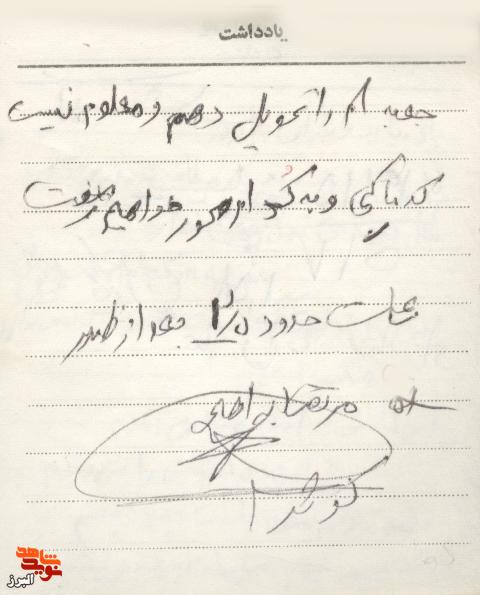 یادداشت
جعبه ام را تحویل دهم و معلوم نیست
که با کی و به کدام محور خواهیم رفت
ساعت حدود ۲/۵ بعد از ظهر
مرتضی
نوید شاهد
البرز